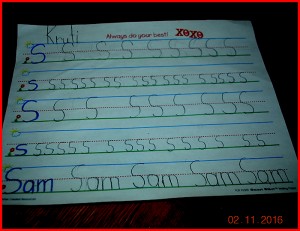 Kruti
Always do your best! xoxo
S S S S S S S S S
s s s s s s s s s s s s s s
S S S S S S S S S
s s s s s s s s s s s s s
Sam Sam Sam Sam Sam
02.11.2016